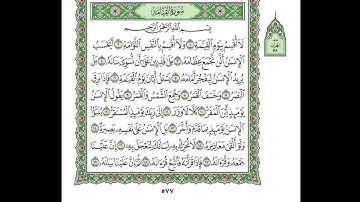 سُورَةُ الْقِيَامَةِ
بِسْمِ اللَّهِ الرَّحْمَٰنِ الرَّحِيمِ
لَآ أُقْسِمُ بِيَوْمِ الْقِيَٰمَةِ ١ وَلَآ أُقْسِمُ بِالنَّفْسِ اللَّوَّامَةِ ٢ أَيَحْسَبُ
الْإِنسَٰنُ أَلَّن نَّجْمَعَ عِظَامَهُۥ ٣ بَلَىٰ قَٰدِرِينَ عَلَىٰٓ أَن نُّسَوِّيَ بَنَانَهُۥ ٤ بَلْ
يُرِيدُ الْإِنسَٰنُ لِيَفْجُرَ أَمَامَهُۥ ٥ يَسْـَٔلُ أَيَّانَ يَوْمُ الْقِيَٰمَةِ ٦ فَإِذَا بَرِقَ
الْبَصَرُ ٧ وَخَسَفَ الْقَمَرُ ٨ وَجُمِعَ الشَّمْسُ وَالْقَمَرُ ٩ يَقُولُ
الْإِنسَٰنُ يَوْمَئِذٍ أَيْنَ الْمَفَرُّ ١٠ كَلَّا لَا وَزَرَ ١١ إِلَىٰ رَبِّكَ يَوْمَئِذٍ الْمُسْتَقَرُّ ١٢ يُنَبَّؤُا۟
الْإِنسَٰنُ يَوْمَئِذٍۭ بِمَا قَدَّمَ وَأَخَّرَ ١٣ بَلِ الْإِنسَٰنُ عَلَىٰ نَفْسِهِۦ بَصِيرَةٌ ١٤
وَلَوْ أَلْقَىٰ مَعَاذِيرَهُۥ ١٥ لَا تُحَرِّكْ بِهِۦ لِسَانَكَ لِتَعْجَلَ بِهِۦٓ ١٦ إِنَّ عَلَيْنَا
جَمْعَهُۥ وَقُرْءَانَهُۥ ١٧ فَإِذَا قَرَأْنَٰهُ فَاتَّبِعْ قُرْءَانَهُۥ ١٨ ثُمَّ إِنَّ عَلَيْنَا بَيَانَهُۥ ١٩
٥٧٧